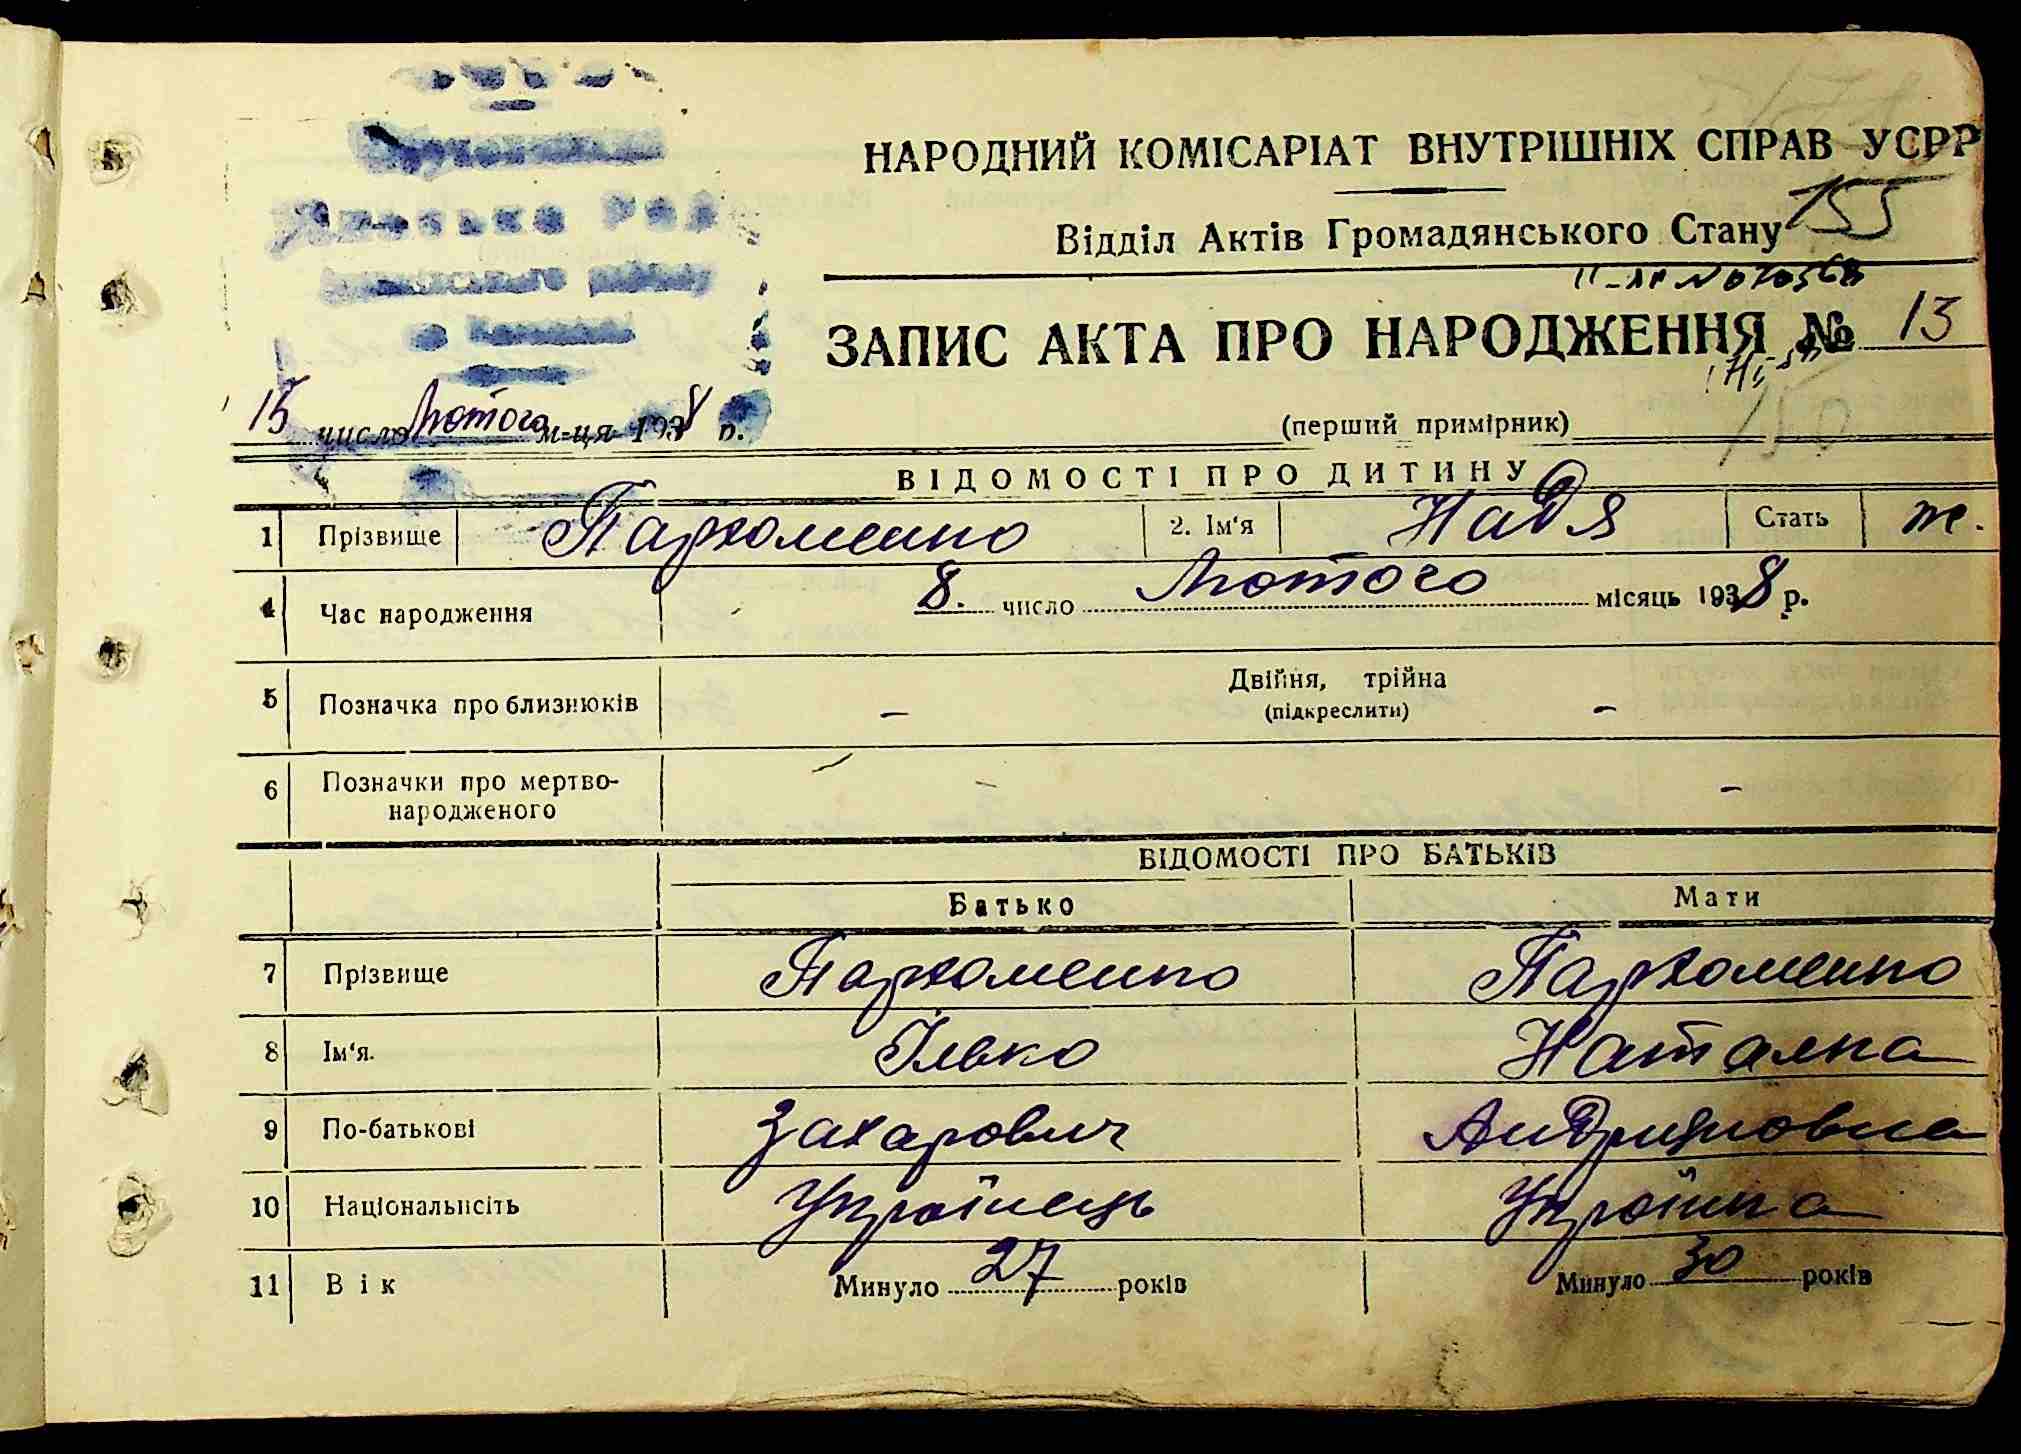 НАРОДНИЙ КОМІСАРІАТ ВНУТРІШНІХ СПРАВ УСРР
155
Відділ Актів Громадянського Стану
ЗАПИС АКТА ПРО НАРОДЖЕННЯ № 13
15 число Лютого м-ця 1938 р.
(перший примірник)
150
ВІДОМОСТІ ПРО ДИТИНУ
1 Прізвище Пархоменко 2. Ім'я Надя Стать ж.
4 Час народження 8. число Лютого місяць 1938 р.
5 Позначка про близнюків – Двійня, трійна –
(підкреслити)
6 Позначки про мертво- – –
народженого
ВІДОМОСТІ ПРО БАТЬКІВ
Батько Мати
7 Прізвище Пархоменко Пархоменко
8 Ім'я. Ілько Наталка
9 По-батькові Захарович Андріяновна
10 Національність Українець Українка
11 Вік Минуло 27 років Минуло 30 років